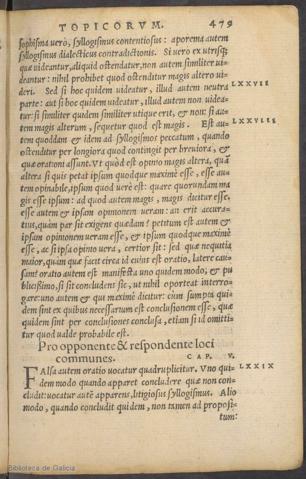 TOPICORVM. 479
sophisma verò, syllogismus contentiosus: aporema autem
syllogismus dialecticus contradictionis. Si vero ex utrisq;
quæ videantur, aliquid ostendatur, non autem similiter vi-
deantur: nihil prohibet quod ostenditur magis altero vi-
deri. Sed si hoc quidem videatur, illud autem neutra LXXVII
parte: aut si hoc quidem videatur, illud autem non videa-
tur: si similiter quidem similiter utique erit, & non: si au-
tem magis alterum, sequetur quod est magis. Est au- LXXVIII
tem quoddam & idem ad syllogismos peccatum, quando
ostenditur per longiora quod contingit per breuiora, &
quæ orationi assunt. Vt quòd est opinio magis altera, quàm
altera si quis petat ipsum quodque maximè esse, esse au-
tem opinabile, ipsum quod verè est: quare quorundam ma
gis esse ipsum: ad quod autem magis, magis dicitur esse,
esse autem & ipsam opinionem veram: an erit accura-
tius, quàm par sit exigens quædam? petitum est autem &
ipsam opinionem veram esse, & ipsum quodque maximè
esse, ac si ipsa opinio vera, certior sit: sed quæ nequitia
maior, quàm quæ facit circa id cuius est oratio, latere cau-
sam? oratio autem est manifesta uno quidem modo, & pu
blicissimo, si sit concludens sic, ut nihil oporteat interro-
gare: uno autem & qui maximè dicitur: cum sumpta qui-
dem sint ex quibus necessarium est conclusionem esse, quæ
quidem sint per conclusiones conclusa, etiam si id omitti-
tur quod valde probabile est.
Pro opponente & respondente loci
communes. CAP. V.
FAlsa autem oratio vocatur quadrupliciter. Vno qui- LXXIX
dem modo quando apparet concludere quæ non con-
cludit: vocatur autē apparens, litigiosus syllogismus. Alio
modo, quando concludit quidem, non tamen ad proposi-
tum:
Biblioteca de Galicia